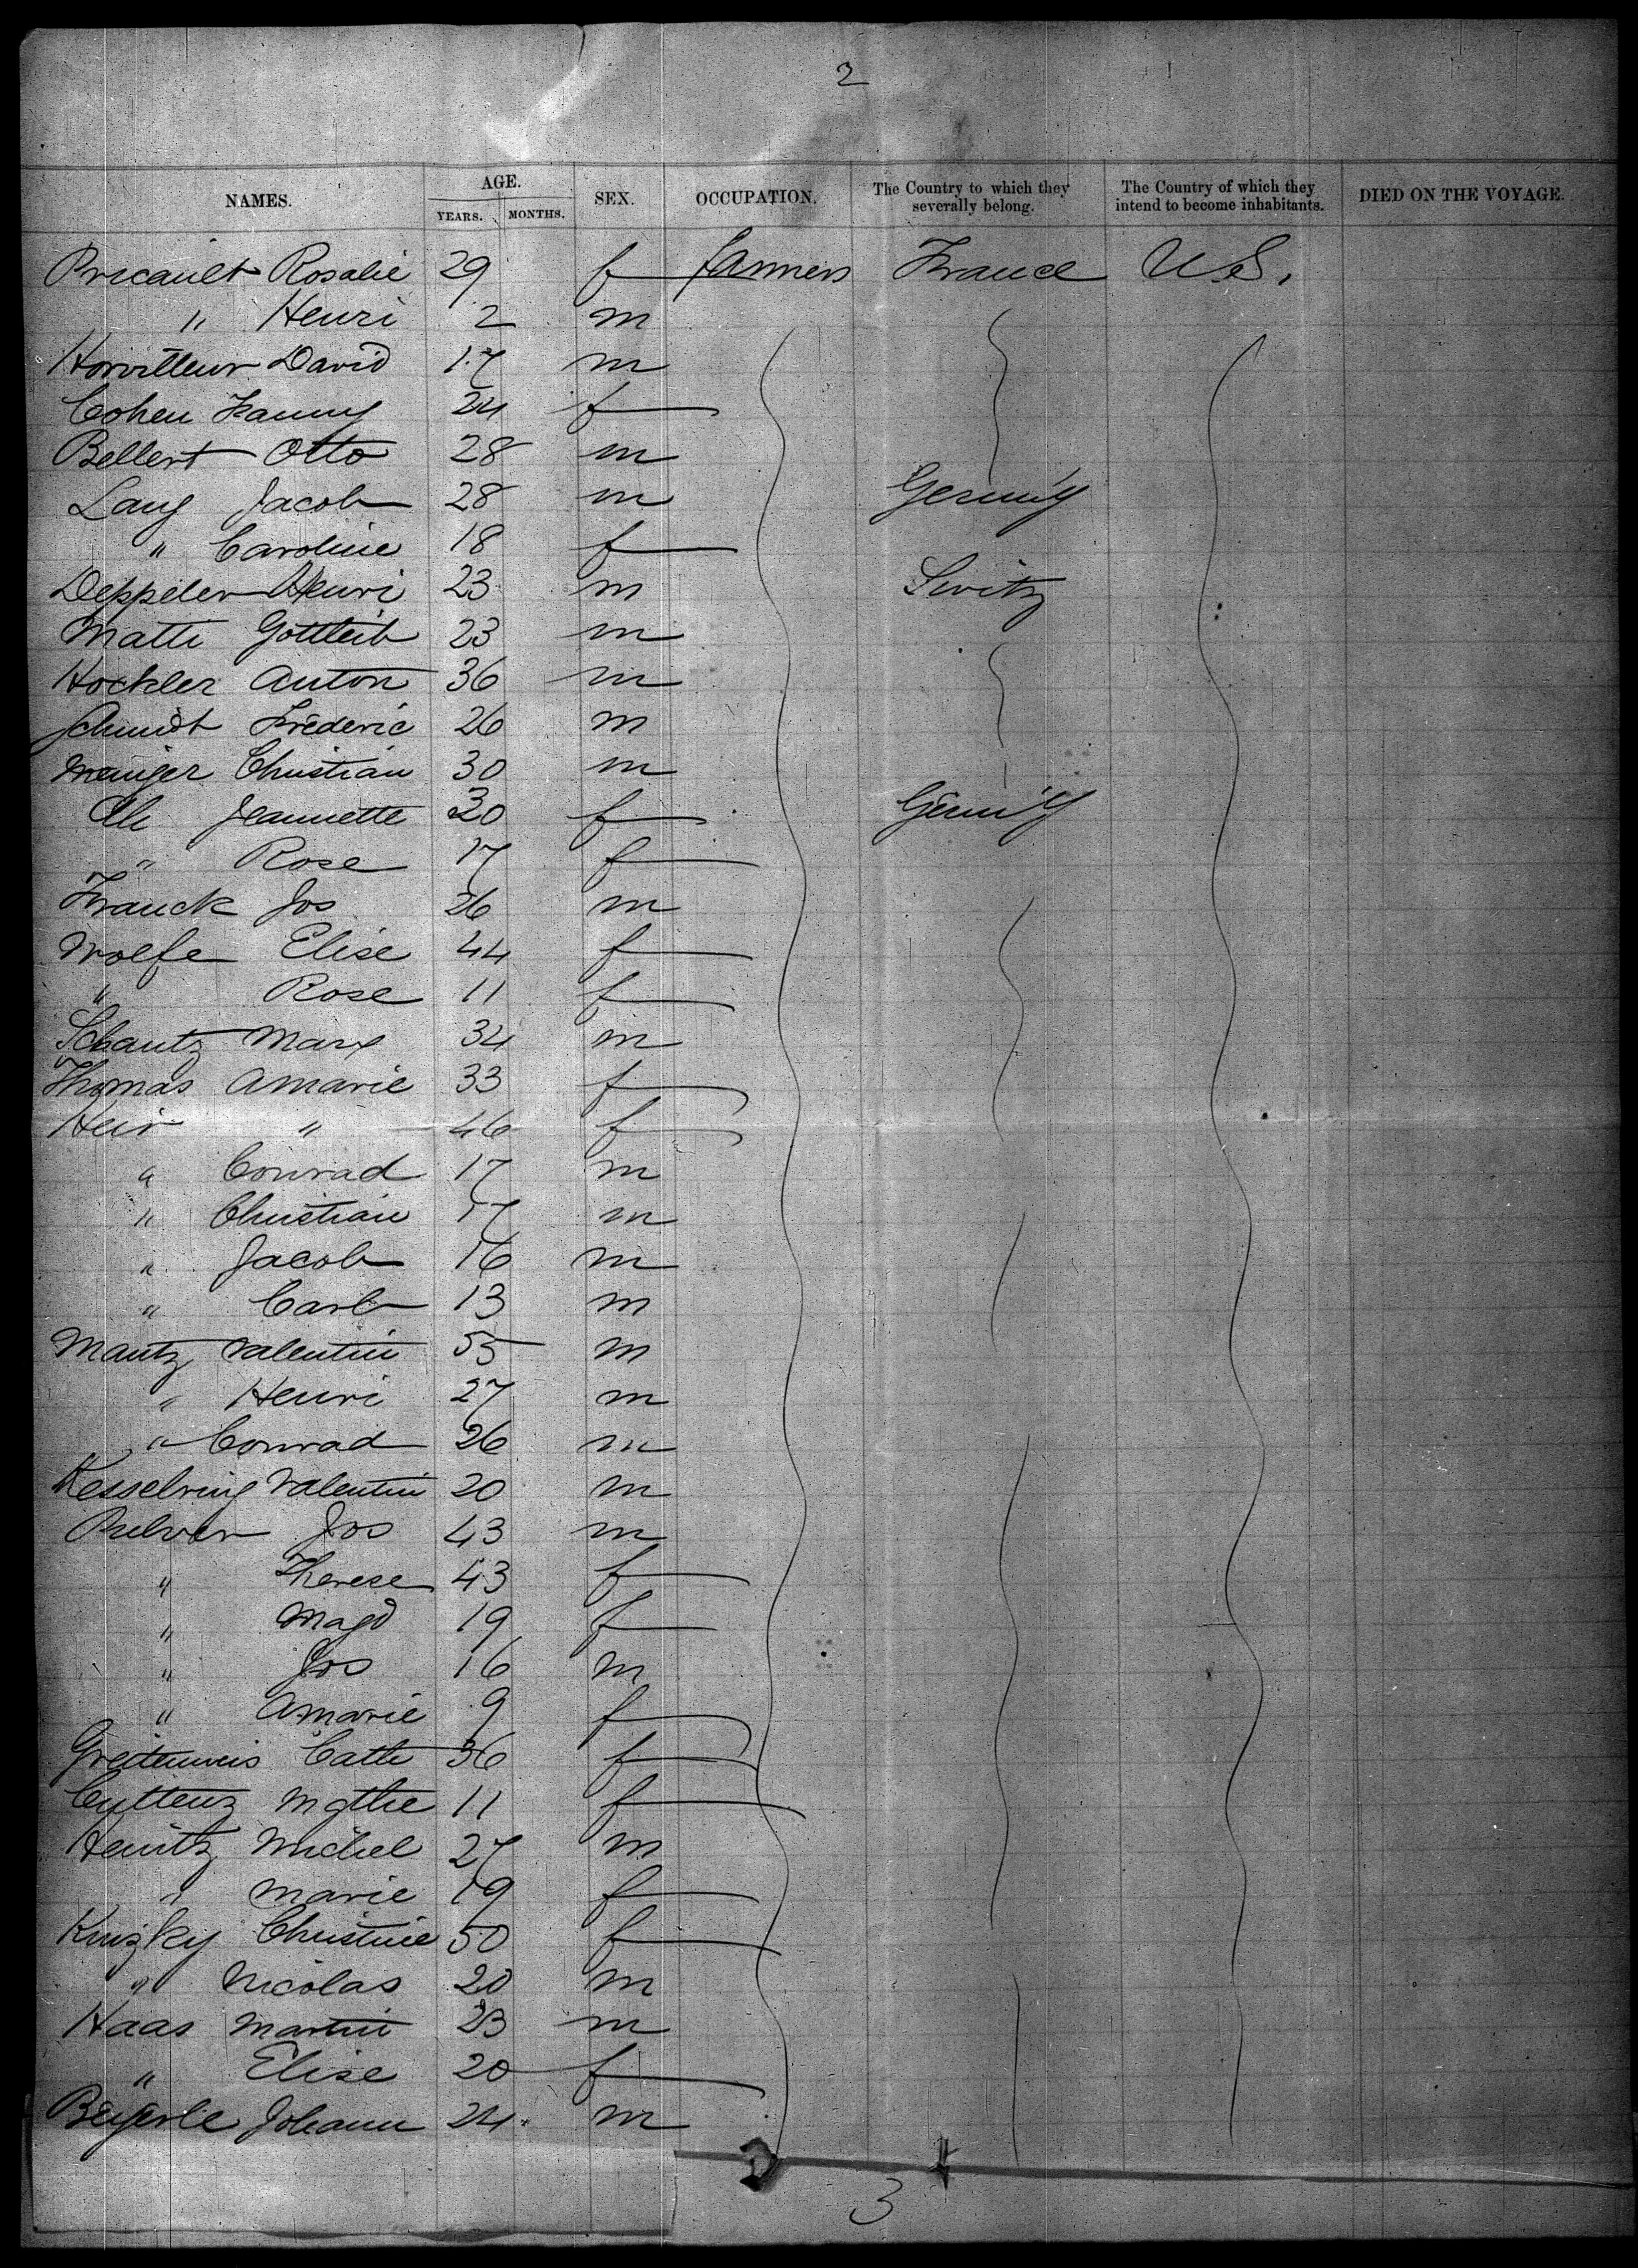 2
NAMES. AGE. YEARS. MONTHS. SEX. OCCUPATION. The Country to which they severally belong. The Country of which they intend to become inhabitants. DIED ON THE VOYAGE.
Pricault Rosalie 29 f farmers France U.S.
" Henri 2 m
Horvilleur David 17 m
Cohen Fanny 24 f
Bellert Otto 28 m
Lang Jacob 28 m Germ'y
" Caroline 18 f
Deppeler Henri 23 m Switz
Matti Gottleib 23 m
Hockler Anton 36 m
Schmidt Frederic 26 m
Meniger Christian 30 m
Jeannette 30 f Germ'y
" Rose 17 f
Franck Jos 26 m
Wolfe Elise 44 f
" Rose 11 f
Schantz Marx 34 m
Thomas Amarie 33 f
Heir " 46 f
" Conrad 17 m
" Christian 17 m
" Jacob 16 m
" Carl 13 m
Mantz Valentin 55 m
" Henri 27 m
" Conrad 26 m
Kesselring Valentin 20 m
Pulver Jos 43 m
" Therese 43 f
" Magd 19 f
" Jos 16 m
" Amarie 9 f
Cath 36 f
Mgthe 11 f
Heintz Michel 27 m
" Marie 19 f
Kinzky Christine 50 f
" Nicolas 20 m
Haas Martin 23 m
" Elise 20 f
Beyerle Johann 24 m
3